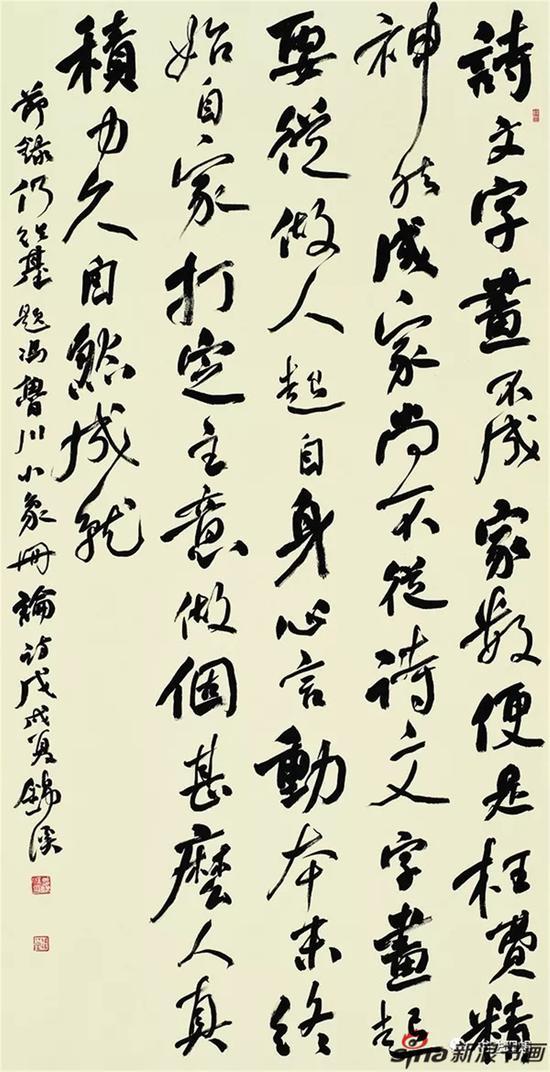 詩文字畫不成家數便是枉費精
神然成家尚不從詩文字畫起
要從做人起自身心言動本末終
始自家打定主意做個甚麼人真
積力久自然成就
節錄何紹基題馮魯川小象冊論詩戊戌夏
sina新浪书画